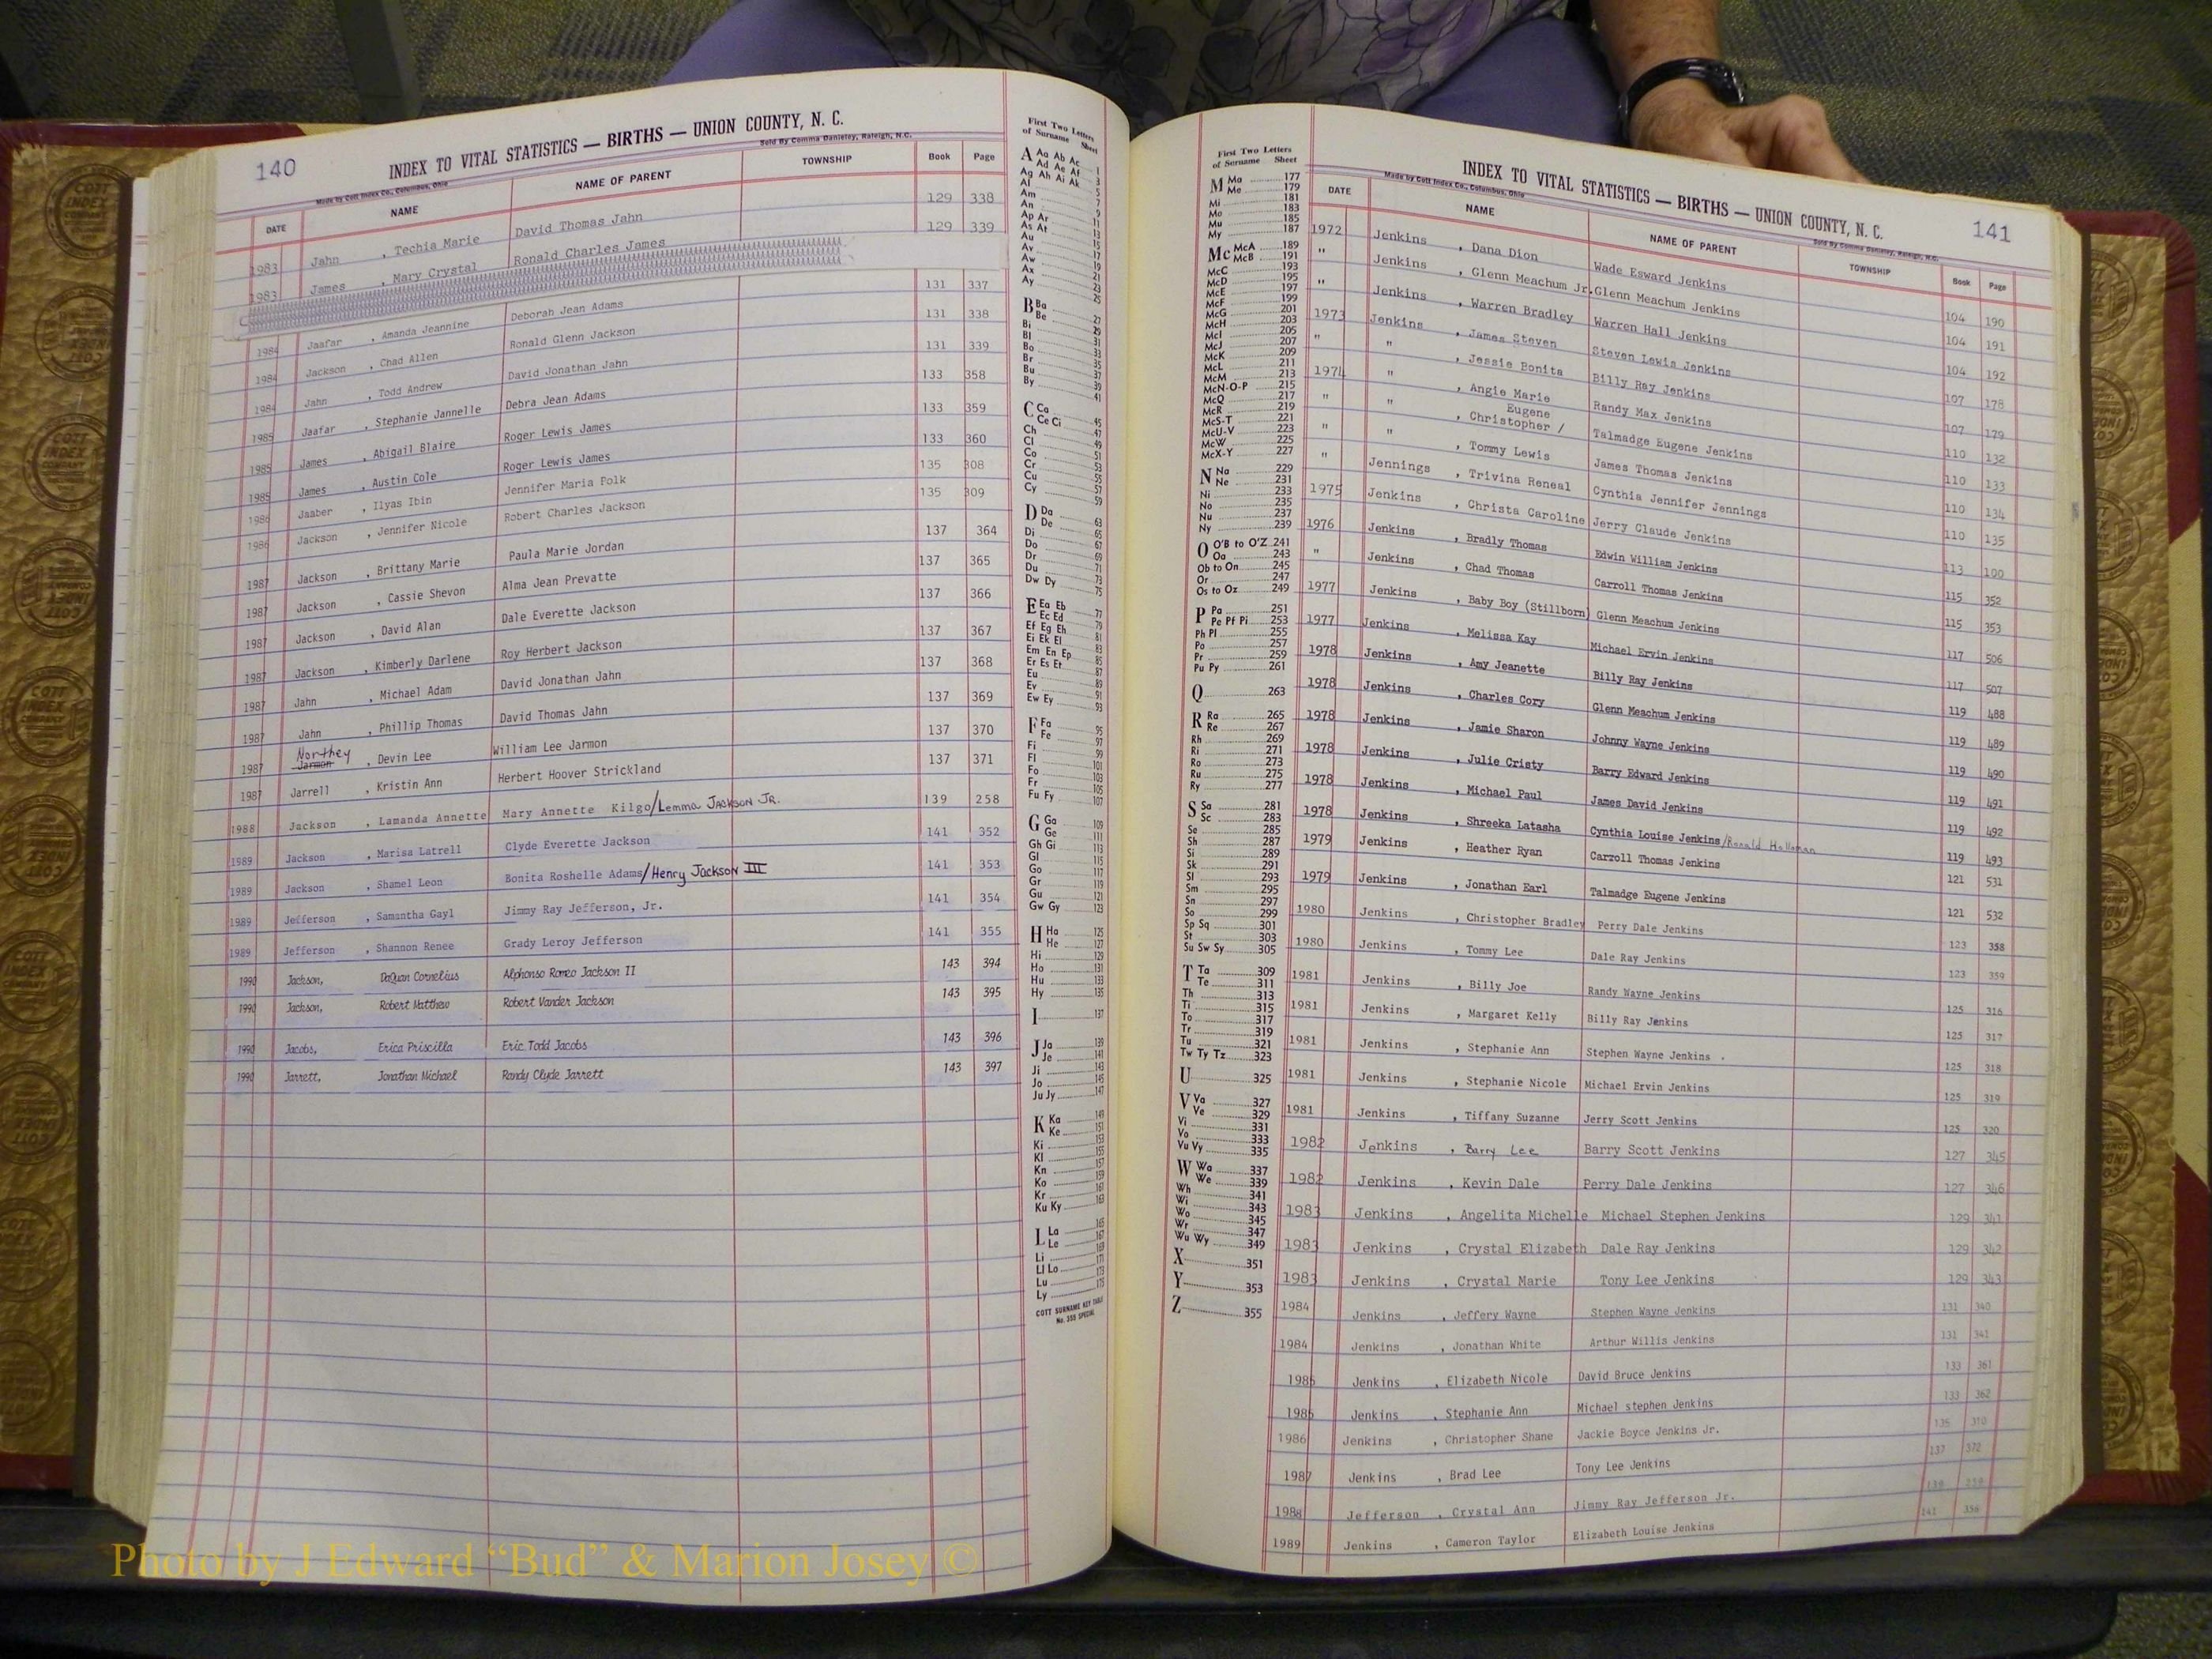 140
INDEX TO VITAL STATISTICS — BIRTHS — UNION COUNTY, N. C.
Made by Cott Index Co., Columbus, Ohio
Sold By Comma Danieley, Raleigh, N.C.
DATE NAME NAME OF PARENT TOWNSHIP Book Page
1983 Jahn , Techia Marie David Thomas Jahn 129 338
1983 James , Mary Crystal Ronald Charles James 129 339
1984 Jaafar , Amanda Jeannine Deborah Jean Adams 131 337
1984 Jackson , Chad Allen Ronald Glenn Jackson 131 338
1984 Jahn , Todd Andrew David Jonathan Jahn 131 339
1985 Jaafar , Stephanie Jannelle Debra Jean Adams 133 358
1985 James , Abigail Blaire Roger Lewis James 133 359
1985 James , Austin Cole Roger Lewis James 133 360
1986 Jaaber , Ilyas Ibin Jennifer Maria Folk 135 308
1986 Jackson , Jennifer Nicole Robert Charles Jackson 135 309
1987 Jackson , Brittany Marie Paula Marie Jordan 137 364
1987 Jackson , Cassie Shevon Alma Jean Prevatte 137 365
1987 Jackson , David Alan Dale Everette Jackson 137 366
1987 Jackson , Kimberly Darlene Roy Herbert Jackson 137 367
1987 Jahn , Michael Adam David Jonathan Jahn 137 368
1987 Jahn , Phillip Thomas David Thomas Jahn 137 369
Northey
1987 Jarmon , Devin Lee William Lee Jarmon 137 370
1987 Jarrell , Kristin Ann Herbert Hoover Strickland 137 371
1988 Jackson , Lamanda Annette Mary Annette Kilgo/Lemma Jackson Jr. 139 258
1989 Jackson , Marisa Latrell Clyde Everette Jackson 141 352
1989 Jackson , Shamel Leon Bonita Roshelle Adams/Henry Jackson III 141 353
1989 Jefferson , Samantha Gayl Jimmy Ray Jefferson, Jr. 141 354
1989 Jefferson , Shannon Renee Grady Leroy Jefferson 141 355
1990 Jackson, DaQuan Cornelius Alphonso Romeo Jackson II 143 394
1990 Jackson, Robert Matthew Robert Vander Jackson 143 395
1990 Jacobs, Erica Priscilla Eric Todd Jacobs 143 396
1990 Jarrett, Jonathan Michael Randy Clyde Jarrett 143 397
First Two Letters
of Surname Sheet
A Aa Ab Ac
Ad Ae Af 1
Ag Ah Ai Ak 3
Al 5
Am 7
An 9
Ap Ar 11
As At 13
Au 15
Av 17
Aw 19
Ax 21
Ay 23
25
B Ba 27
Be 29
Bi 31
Bl 33
Bo 35
Br 37
Bu 39
By 41
C Ca 45
Ce Ci 47
Ch 49
Cl 51
Co 53
Cr 55
Cu 57
Cy 59
D Da 63
De 65
Di 67
Do 69
Dr 71
Du 73
Dw Dy 75
E Ea Eb 77
Ec Ed 79
Ef Eg Eh 81
Ei Ek El 83
Em En Ep 85
Er Es Et 87
Eu 89
Ev 91
Ew Ey 93
F Fa 95
Fe 97
Fi 99
Fl 101
Fo 103
Fr 105
Fu Fy 107
G Ga 109
Ge 111
Gh Gi 113
Gl 115
Go 117
Gr 119
Gu 121
Gw Gy 123
H Ha 125
He 127
Hi 129
Ho 131
Hu 133
Hy 135
I 137
J Ja 139
Je 141
Ji 143
Jo 145
Ju Jy 147
K Ka 149
Ke 151
Ki 153
Kl 155
Kn 157
Ko 159
Kr 161
Ku Ky 163
L La 165
Le 167
Li 169
Ll Lo 171
Lu 173
Ly 175
COTT SURNAME KEY TABLE
No. 355 SPECIAL
First Two Letters
of Surname Sheet
M Ma 177
Me 179
Mi 181
Mo 183
Mu 185
My 187
Mc McA 189
McB 191
McC 193
McD 195
McE 197
McF 199
McG 201
McH 203
McI 205
McJ 207
McK 209
McL 211
McM 213
McN-O-P 215
McQ 217
McR 219
McS-T 221
McU-V 223
McW 225
McX-Y 227
N Na 229
Ne 231
Ni 233
No 235
Nu 237
Ny 239
O O'B to O'Z 241
Oa 243
Ob to On 245
Or 247
Os to Oz 249
P Pa 251
Pe Pf Pi 253
Ph Pl 255
Po 257
Pr 259
Pu Py 261
Q 263
R Ra 265
Re 267
Rh 269
Ri 271
Ro 273
Ru 275
Ry 277
S Sa 281
Sc 283
Se 285
Sh 287
Si 289
Sk 291
Sl 293
Sm 295
Sn 297
So 299
Sp Sq 301
St 303
Su Sw Sy 305
T Ta 309
Te 311
Th 313
Ti 315
To 317
Tr 319
Tu 321
Tw Ty Tz 323
U 325
V Va 327
Ve 329
Vi 331
Vo 333
Vu Vy 335
W Wa 337
We 339
Wh 341
Wi 343
Wo 345
Wr 347
Wu Wy 349
X 351
Y 353
Z 355
141
INDEX TO VITAL STATISTICS — BIRTHS — UNION COUNTY, N. C.
Made by Cott Index Co., Columbus, Ohio
Sold By Comma Danieley, Raleigh, N.C.
DATE NAME NAME OF PARENT TOWNSHIP Book Page
1972 Jenkins , Dana Dion Wade Esward Jenkins 104 190
" Jenkins , Glenn Meachum Jr. Glenn Meachum Jenkins 104 191
" Jenkins , Warren Bradley Warren Hall Jenkins 104 192
1973 Jenkins , James Steven Steven Lewis Jenkins 107 178
" " , Jessie Bonita Billy Ray Jenkins 107 179
1974 " , Angie Marie Randy Max Jenkins 110 132
Eugene
" " , Christopher / Talmadge Eugene Jenkins 110 133
" " , Tommy Lewis James Thomas Jenkins 110 134
" Jennings , Trivina Reneal Cynthia Jennifer Jennings 110 135
1975 Jenkins , Christa Caroline Jerry Claude Jenkins 113 100
1976 Jenkins , Bradly Thomas Edwin William Jenkins 115 352
" Jenkins , Chad Thomas Carroll Thomas Jenkins 115 353
1977 Jenkins , Baby Boy (Stillborn) Glenn Meachum Jenkins 117 506
1977 Jenkins , Melissa Kay Michael Ervin Jenkins 117 507
1978 Jenkins , Amy Jeanette Billy Ray Jenkins 119 488
1978 Jenkins , Charles Cory Glenn Meachum Jenkins 119 489
1978 Jenkins , Jamie Sharon Johnny Wayne Jenkins 119 490
1978 Jenkins , Julie Cristy Barry Edward Jenkins 119 491
1978 Jenkins , Michael Paul James David Jenkins 119 492
1978 Jenkins , Shreeka Latasha Cynthia Louise Jenkins/Ronald 119 493
1979 Jenkins , Heather Ryan Carzoll Thomas Jenkins 121 531
1979 Jenkins , Jonathan Earl Talmadge Eugene Jenkins 121 532
1980 Jenkins , Christopher Bradley Perry Dale Jenkins 123 358
1980 Jenkins , Tommy Lee Dale Ray Jenkins 123 359
1981 Jenkins , Billy Joe Randy Wayne Jenkins 125 316
1981 Jenkins , Margaret Kelly Billy Ray Jenkins 125 317
1981 Jenkins , Stephanie Ann Stephen Wayne Jenkins . 125 318
1981 Jenkins , Stephanie Nicole Michael Ervin Jenkins 125 319
1981 Jenkins , Tiffany Suzanne Jerry Scott Jenkins 125 320
1982 Jenkins , Barry Lee Barry Scott Jenkins 127 345
1982 Jenkins , Kevin Dale Perry Dale Jenkins 127 346
1983 Jenkins , Angelita Michelle Michael Stephen Jenkins 129 341
1983 Jenkins , Crystal Elizabeth Dale Ray Jenkins 129 342
1983 Jenkins , Crystal Marie Tony Lee Jenkins 129 343
1984 Jenkins , Jeffery Wayne Stephen Wayne Jenkins 131 340
1984 Jenkins , Jonathan White Arthur Willis Jenkins 131 341
1985 Jenkins , Elizabeth Nicole David Bruce Jenkins 133 361
1985 Jenkins , Stephanie Ann Michael stephen Jenkins 133 362
1986 Jenkins , Christopher Shane Jackie Boyce Jenkins Jr. 135 310
1987 Jenkins , Brad Lee Tony Lee Jenkins 137 372
1988 Jefferson , Crystal Ann Jimmy Ray Jefferson Jr. 139 259
1989 Jenkins , Cameron Taylor Elizabeth Louise Jenkins 141 356
Photo by J Edward “Bud” & Marion Josey ©